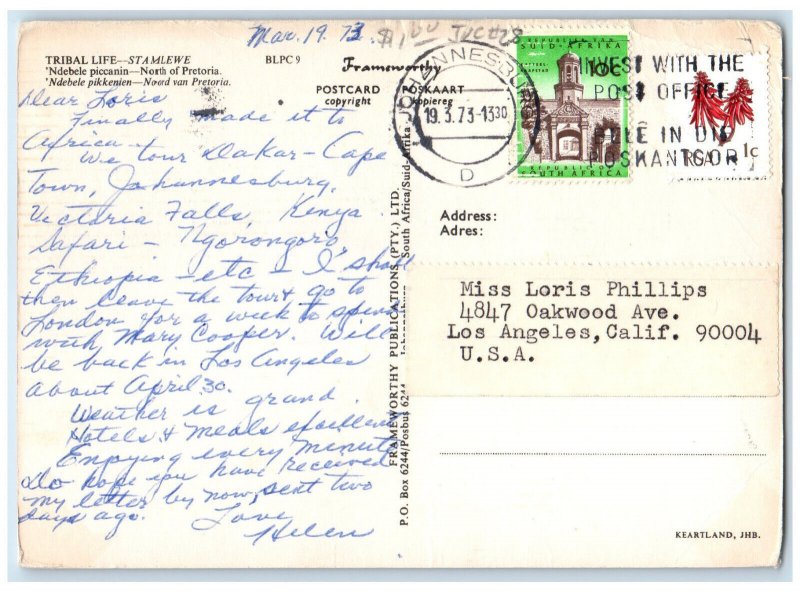 Mar. 19. 73
TRIBAL LIFE—STAMLEWE
BLPC 9
'Ndebele piccanin—North of Pretoria.
'Ndebele pikkenien—Noord van Pretoria.
Frameworthy
POSTCARD POSKAART
copyright kopiereg
Dear Loris
Finally made it to
Africa –
We tour Dakar – Cape
Town, Johannesburg,
Victoria Falls, Kenya
Safari – Ngorongoro,
Ethiopia – etc – I shall
then leave the tour & go to
London for a week to spend
with Mary Cooper. Will
be back in Los Angeles
about April 30.
Weather is grand.
Hotels & meals excellent
Enjoying every minute
Do hope you have received
my letter by now, sent two
days ago.
Love
Helen
FRAMEWORTHY PUBLICATIONS (PTY.) LTD.
P.O. Box 6244/Posbus 6244
South Africa/Suid-Afrika
JOHANNESBURG
19.3.73-1330
D
REPUBLIEK VAN
SUID-AFRIKA
10c
REPUBLIC OF
SOUTH AFRICA
INVEST WITH THE
POST OFFICE
BELÊ IN DIE
POSKANTOOR
RSA 1c
Address:
Adres:
Miss Loris Phillips
4847 Oakwood Ave.
Los Angeles,Calif. 90004
U.S.A.
KEARTLAND, JHB.